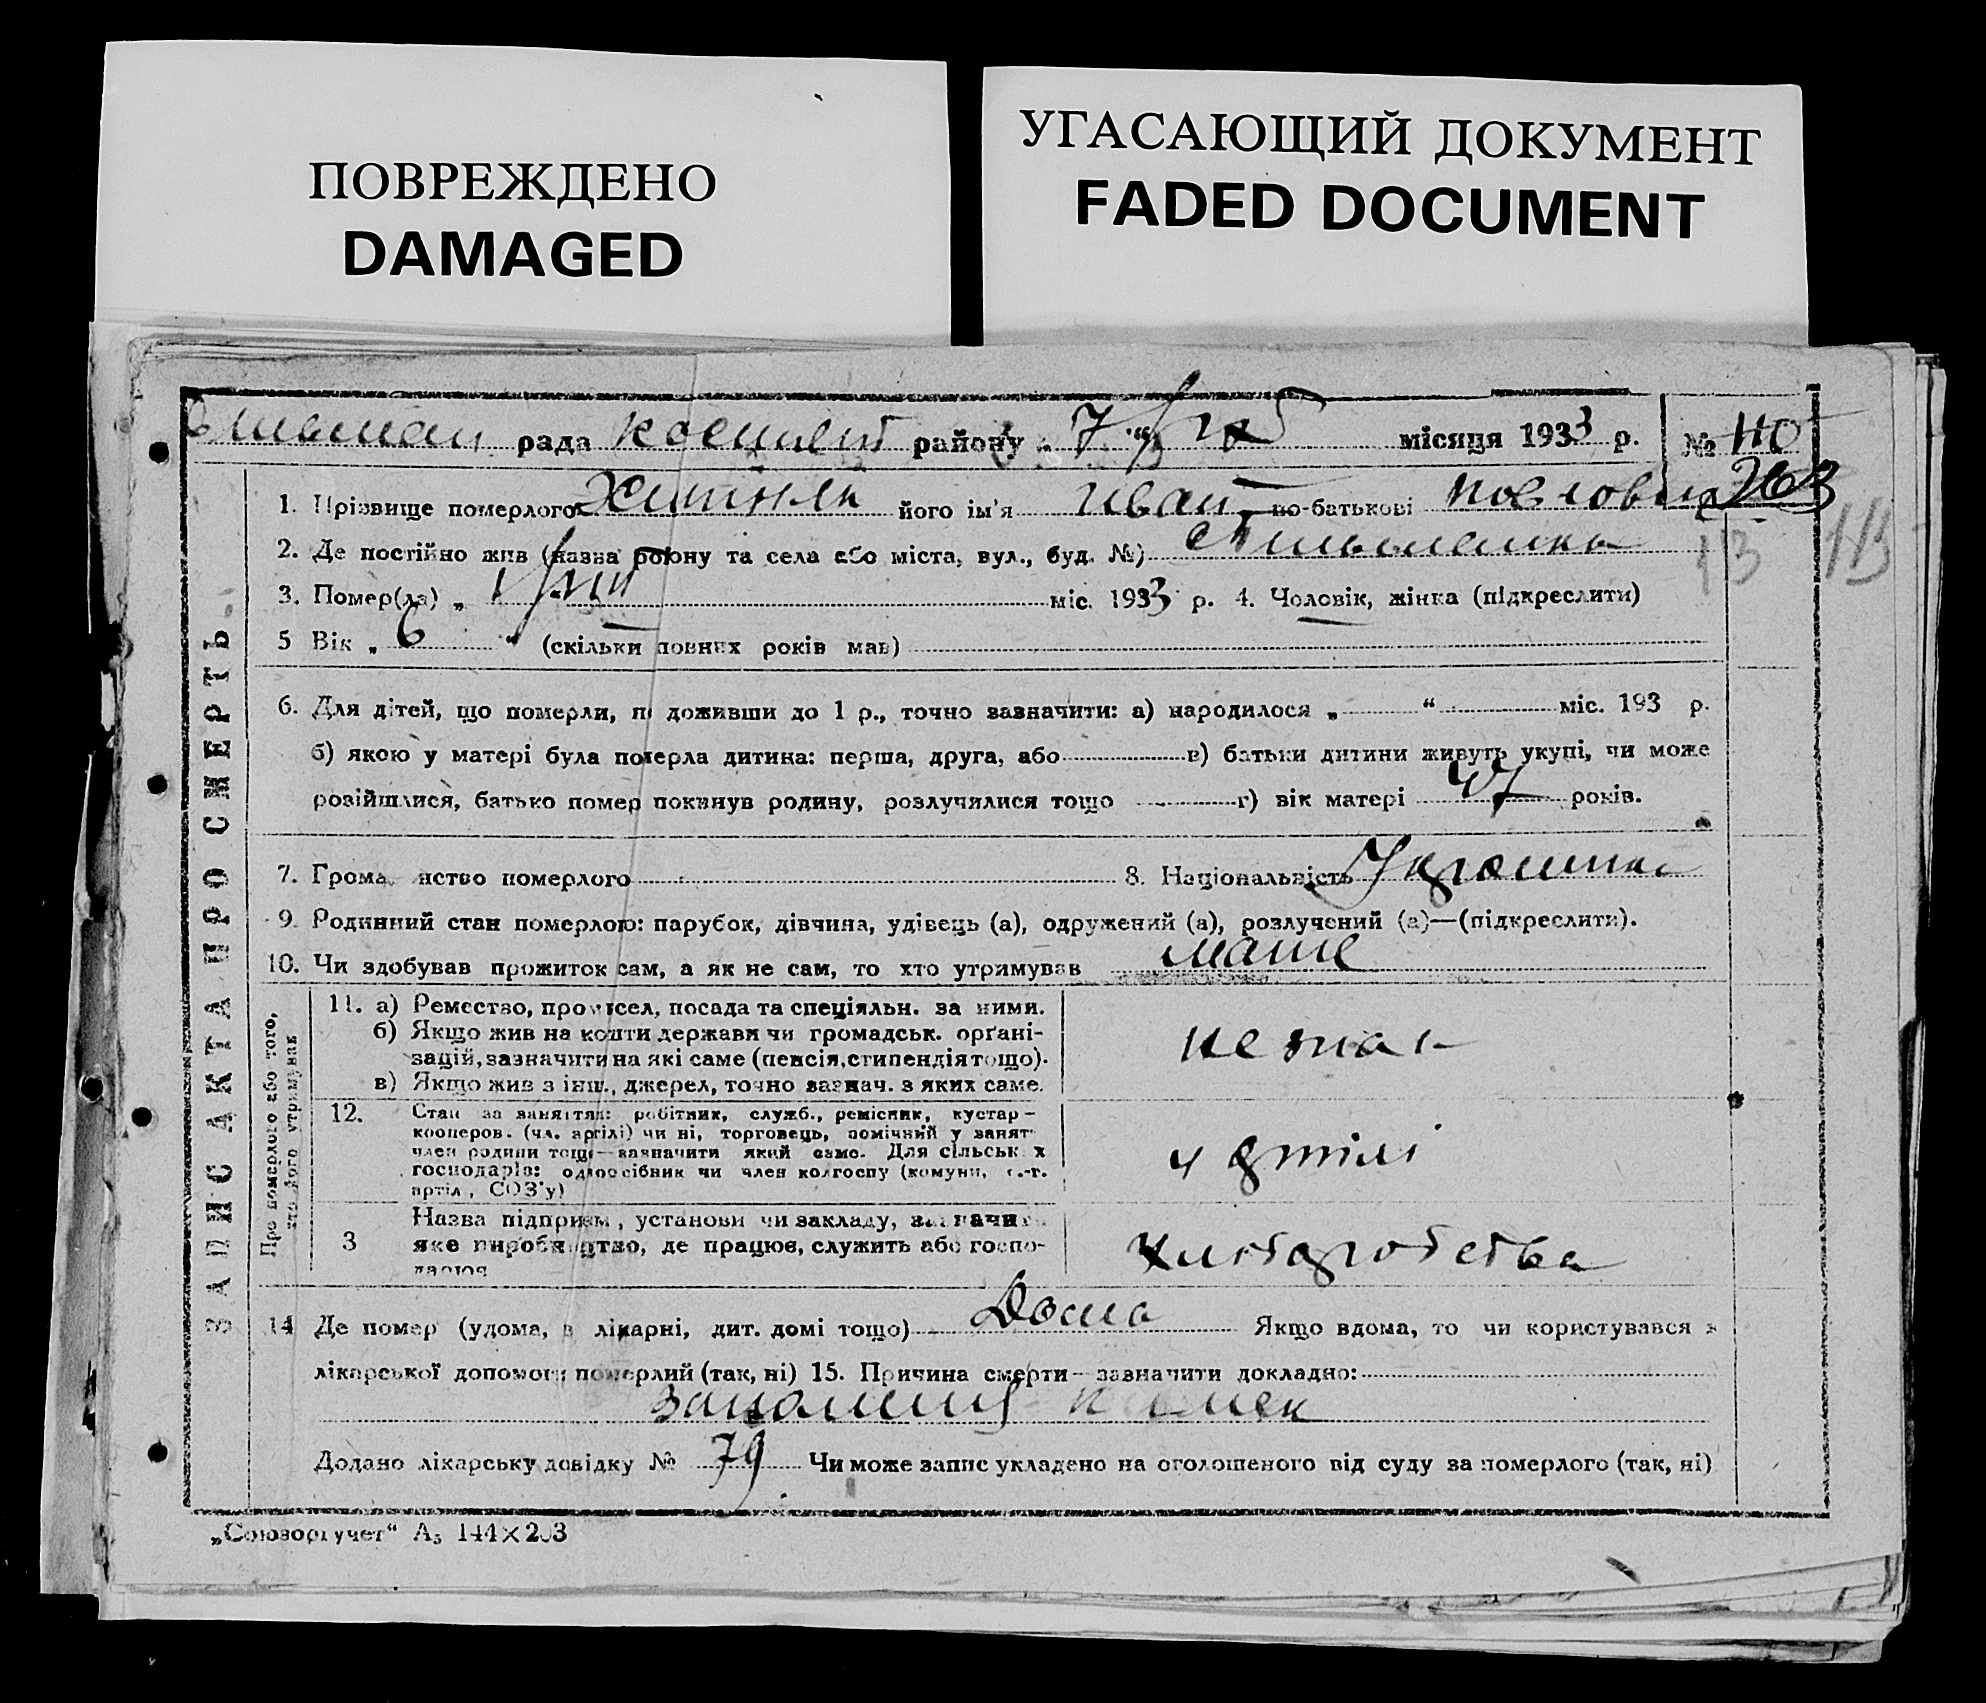 ПОВРЕЖДЕНО
DAMAGED
УГАСАЮЩИЙ ДОКУМЕНТ
FADED DOCUMENT
рада району „ 7 “ місяця 1933 р. № 110
263
1. Прізвище померлого його ім'я Иван по-батькові
2. Де постійно жив (назва району та села або міста, вул., буд. №)
3. Помер(ла) „ міс. 1933 р. 4. Чоловік, жінка (підкреслити)
113
5 Вік „ 6 “ (скільки повних років мав)
6. Для дітей, що померли, не доживши до 1 р., точно зазначити: а) народилося „ “ міс. 193 р.
б) якою у матері була померла дитина: перша, друга, або в) батьки дитини живуть укупі, чи може
розійшлися, батько помер покинув родину, розлучилися тощо г) вік матері 47 років.
7. Грома нство померлого 8. Національність
9. Родинний стан померлого: парубок, дівчина, удівець (а), одружений (а), розлучений (а)—(підкреслити).
10. Чи здобував прожиток сам, а як не сам, то хто утримував
ЗАПИС АКТА ПРО СМЕРТЬ
Про померлого або того, хто його утримував
11. а) Ремество, промисел, посада та спеціяльн. за ними.
б) Якщо жив на кошти держави чи громадськ. орґані-
зацій, зазначити на які саме (пенсія, стипендія тощо).
в) Якщо жив з інш., джерел, точно зазнач. з яких саме.
незнає
12. Стан за заняттям: робітник, служб., ремісник, кустар—
кооперов. (чл. артілі) чи ні, торговець, помічний у занят
член родини тощо—зазначити який саме. Для сільськ х
господарів: одноосібник чи член колгоспу (комуни, с.-г.
артіл, СОЗ'у)
у артілі
3 Назва підприєм, установи чи закладу, зазначити
яке виробництво, де працює, служить або госпо-
дарює
14 Де помер (удома, в лікарні, дит. домі тощо) Дома Якщо вдома, то чи користувався з
лікарської допомоги померлий (так, ні) 15. Причина смерти—зазначити докладно:
Додано лікарську довідку № 79 Чи може запис укладено на оголошеного від суду за померлого (так, ні)
„Союзоргучет“ А5 144×203